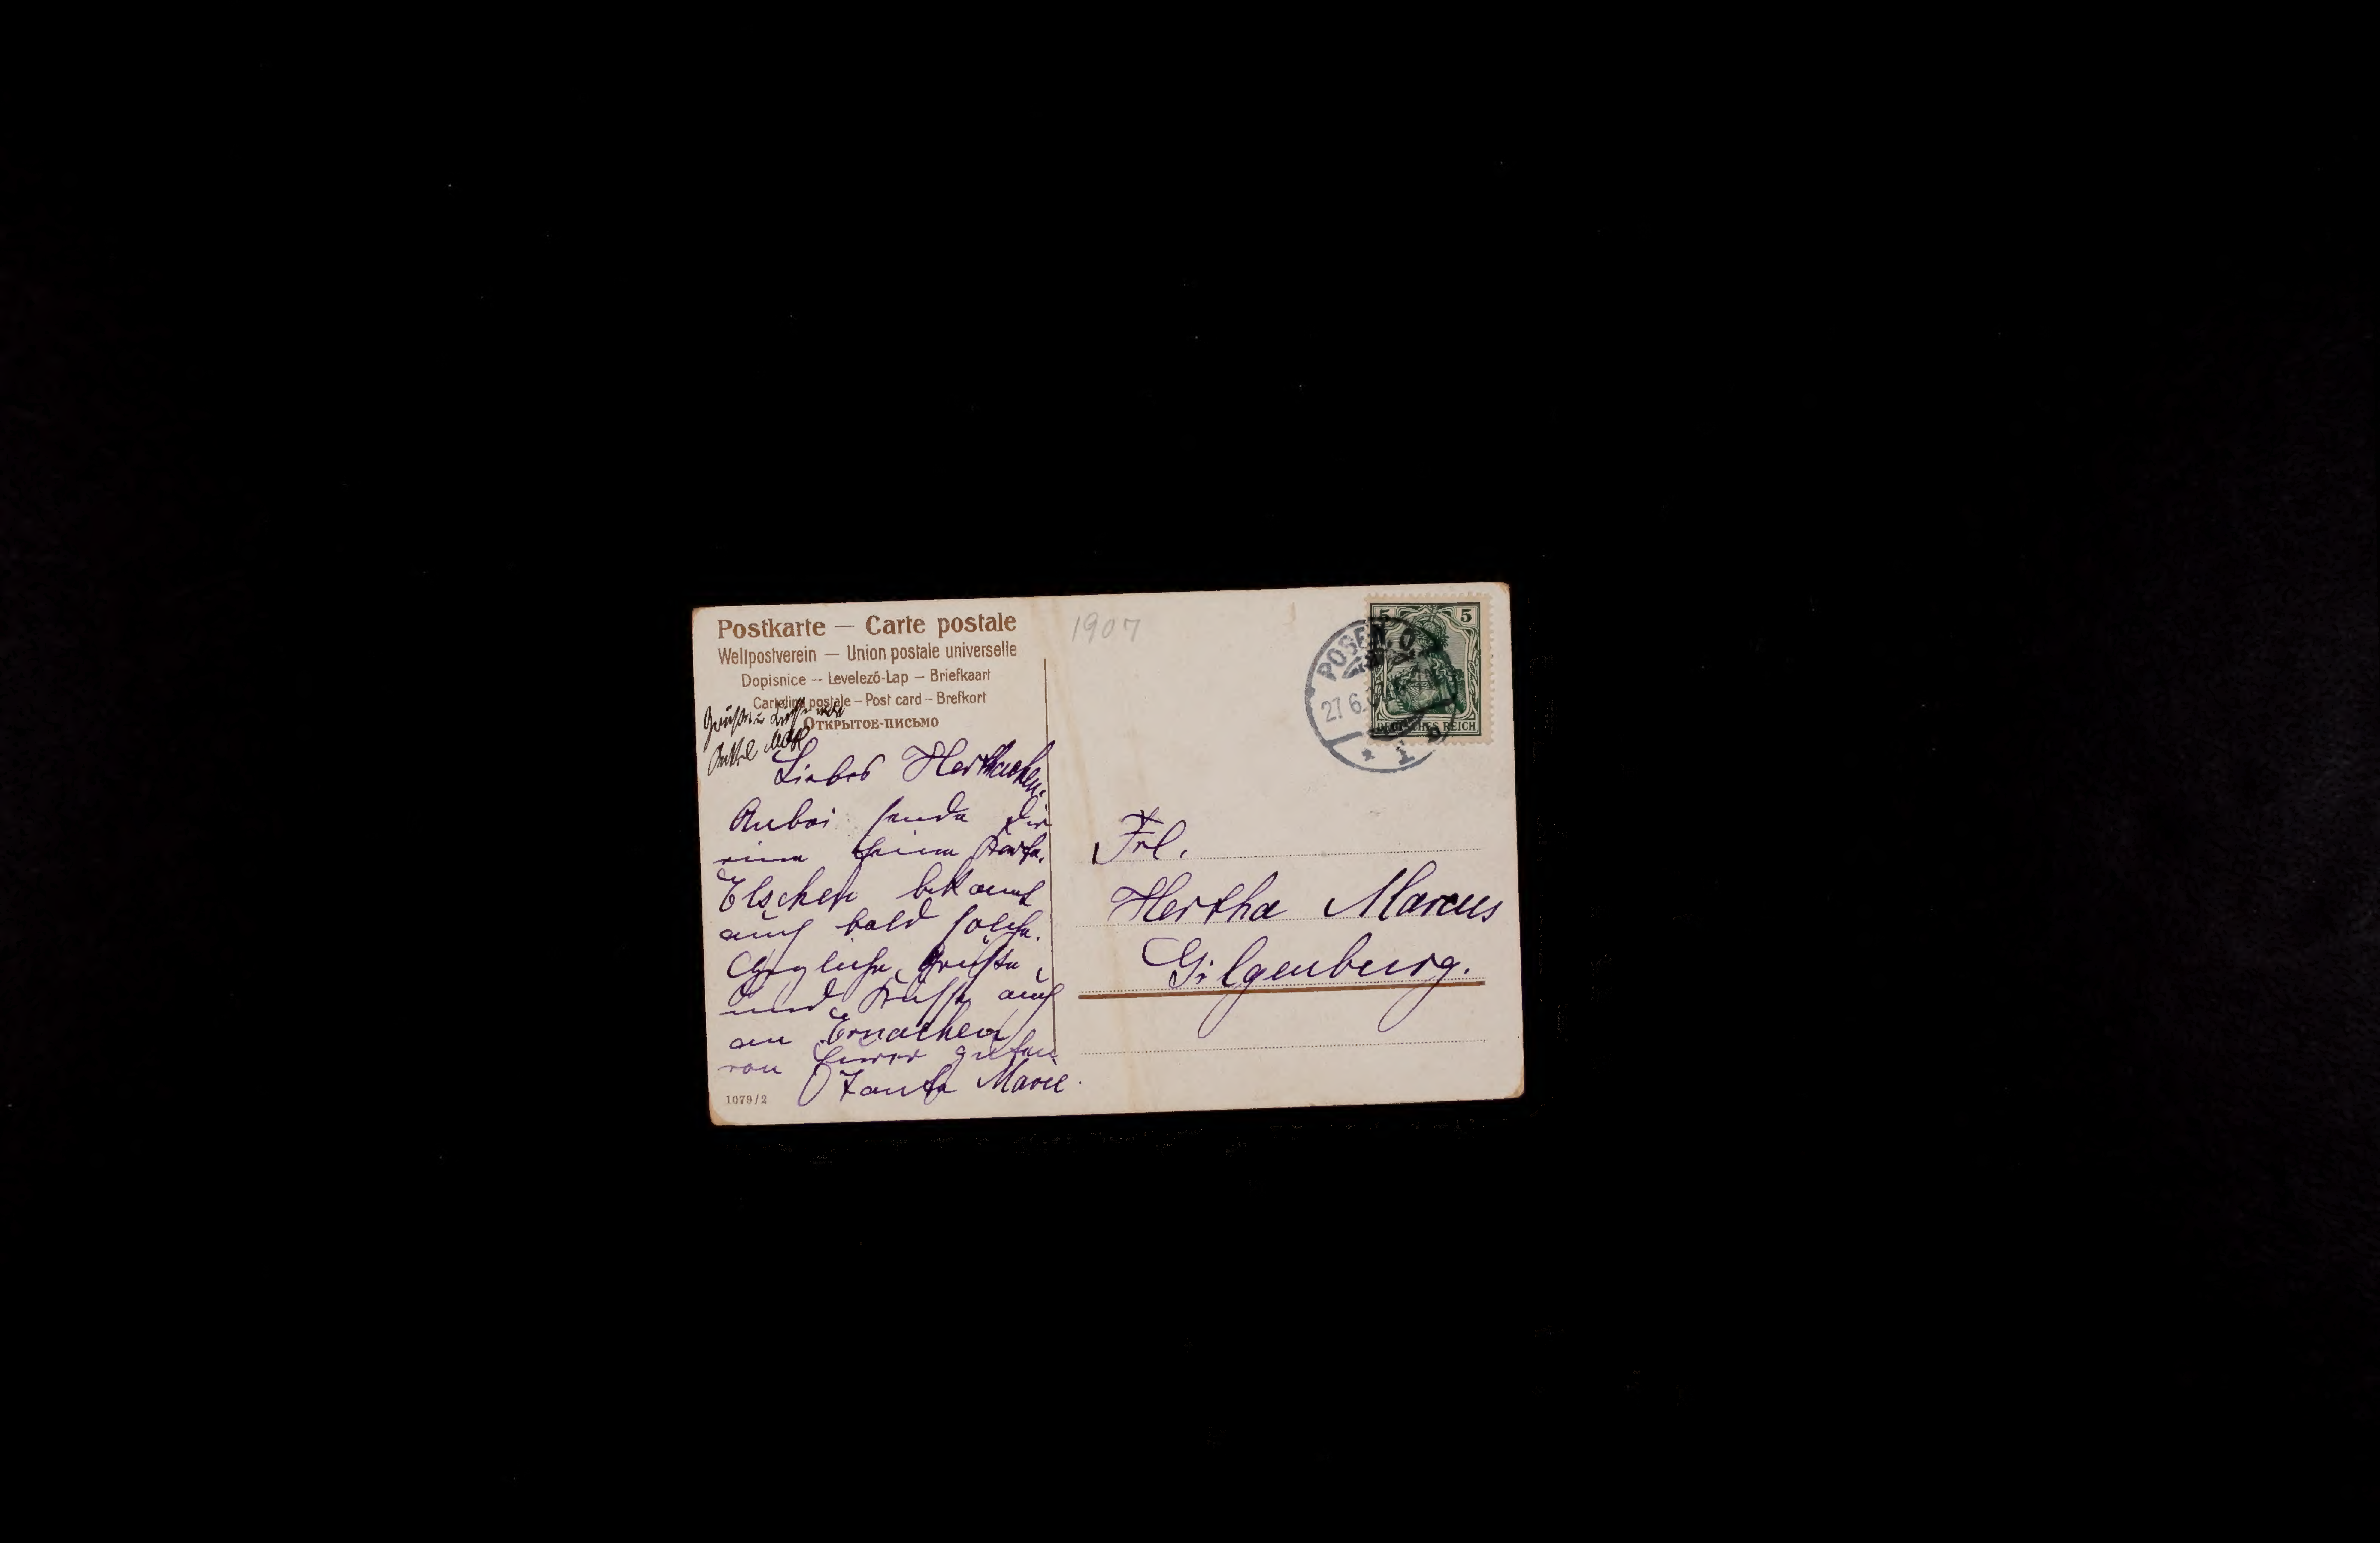 Postkarte — Carte postale
Weltpostverein — Union postale universelle
Dopisnice — Levelező-Lap — Briefkaart
Cartolina postale — Post card — Brefkort
Открытое-письмо
Grüße u. Küsse von
Onkel
Liebes Herthachen.
Anbei sende Dir
eine feine Karte.
Elschen bekommt
auch bald solche.
Herzliche Grüße
und Küsse auch
an Ernachen
von Eurer guten
Tante Marie.
1079/2
1907
POSEN. O.
27.6.
1
5 5
DEUTSCHES REICH
Frl.
Hertha Marcus
Gilgenburg.